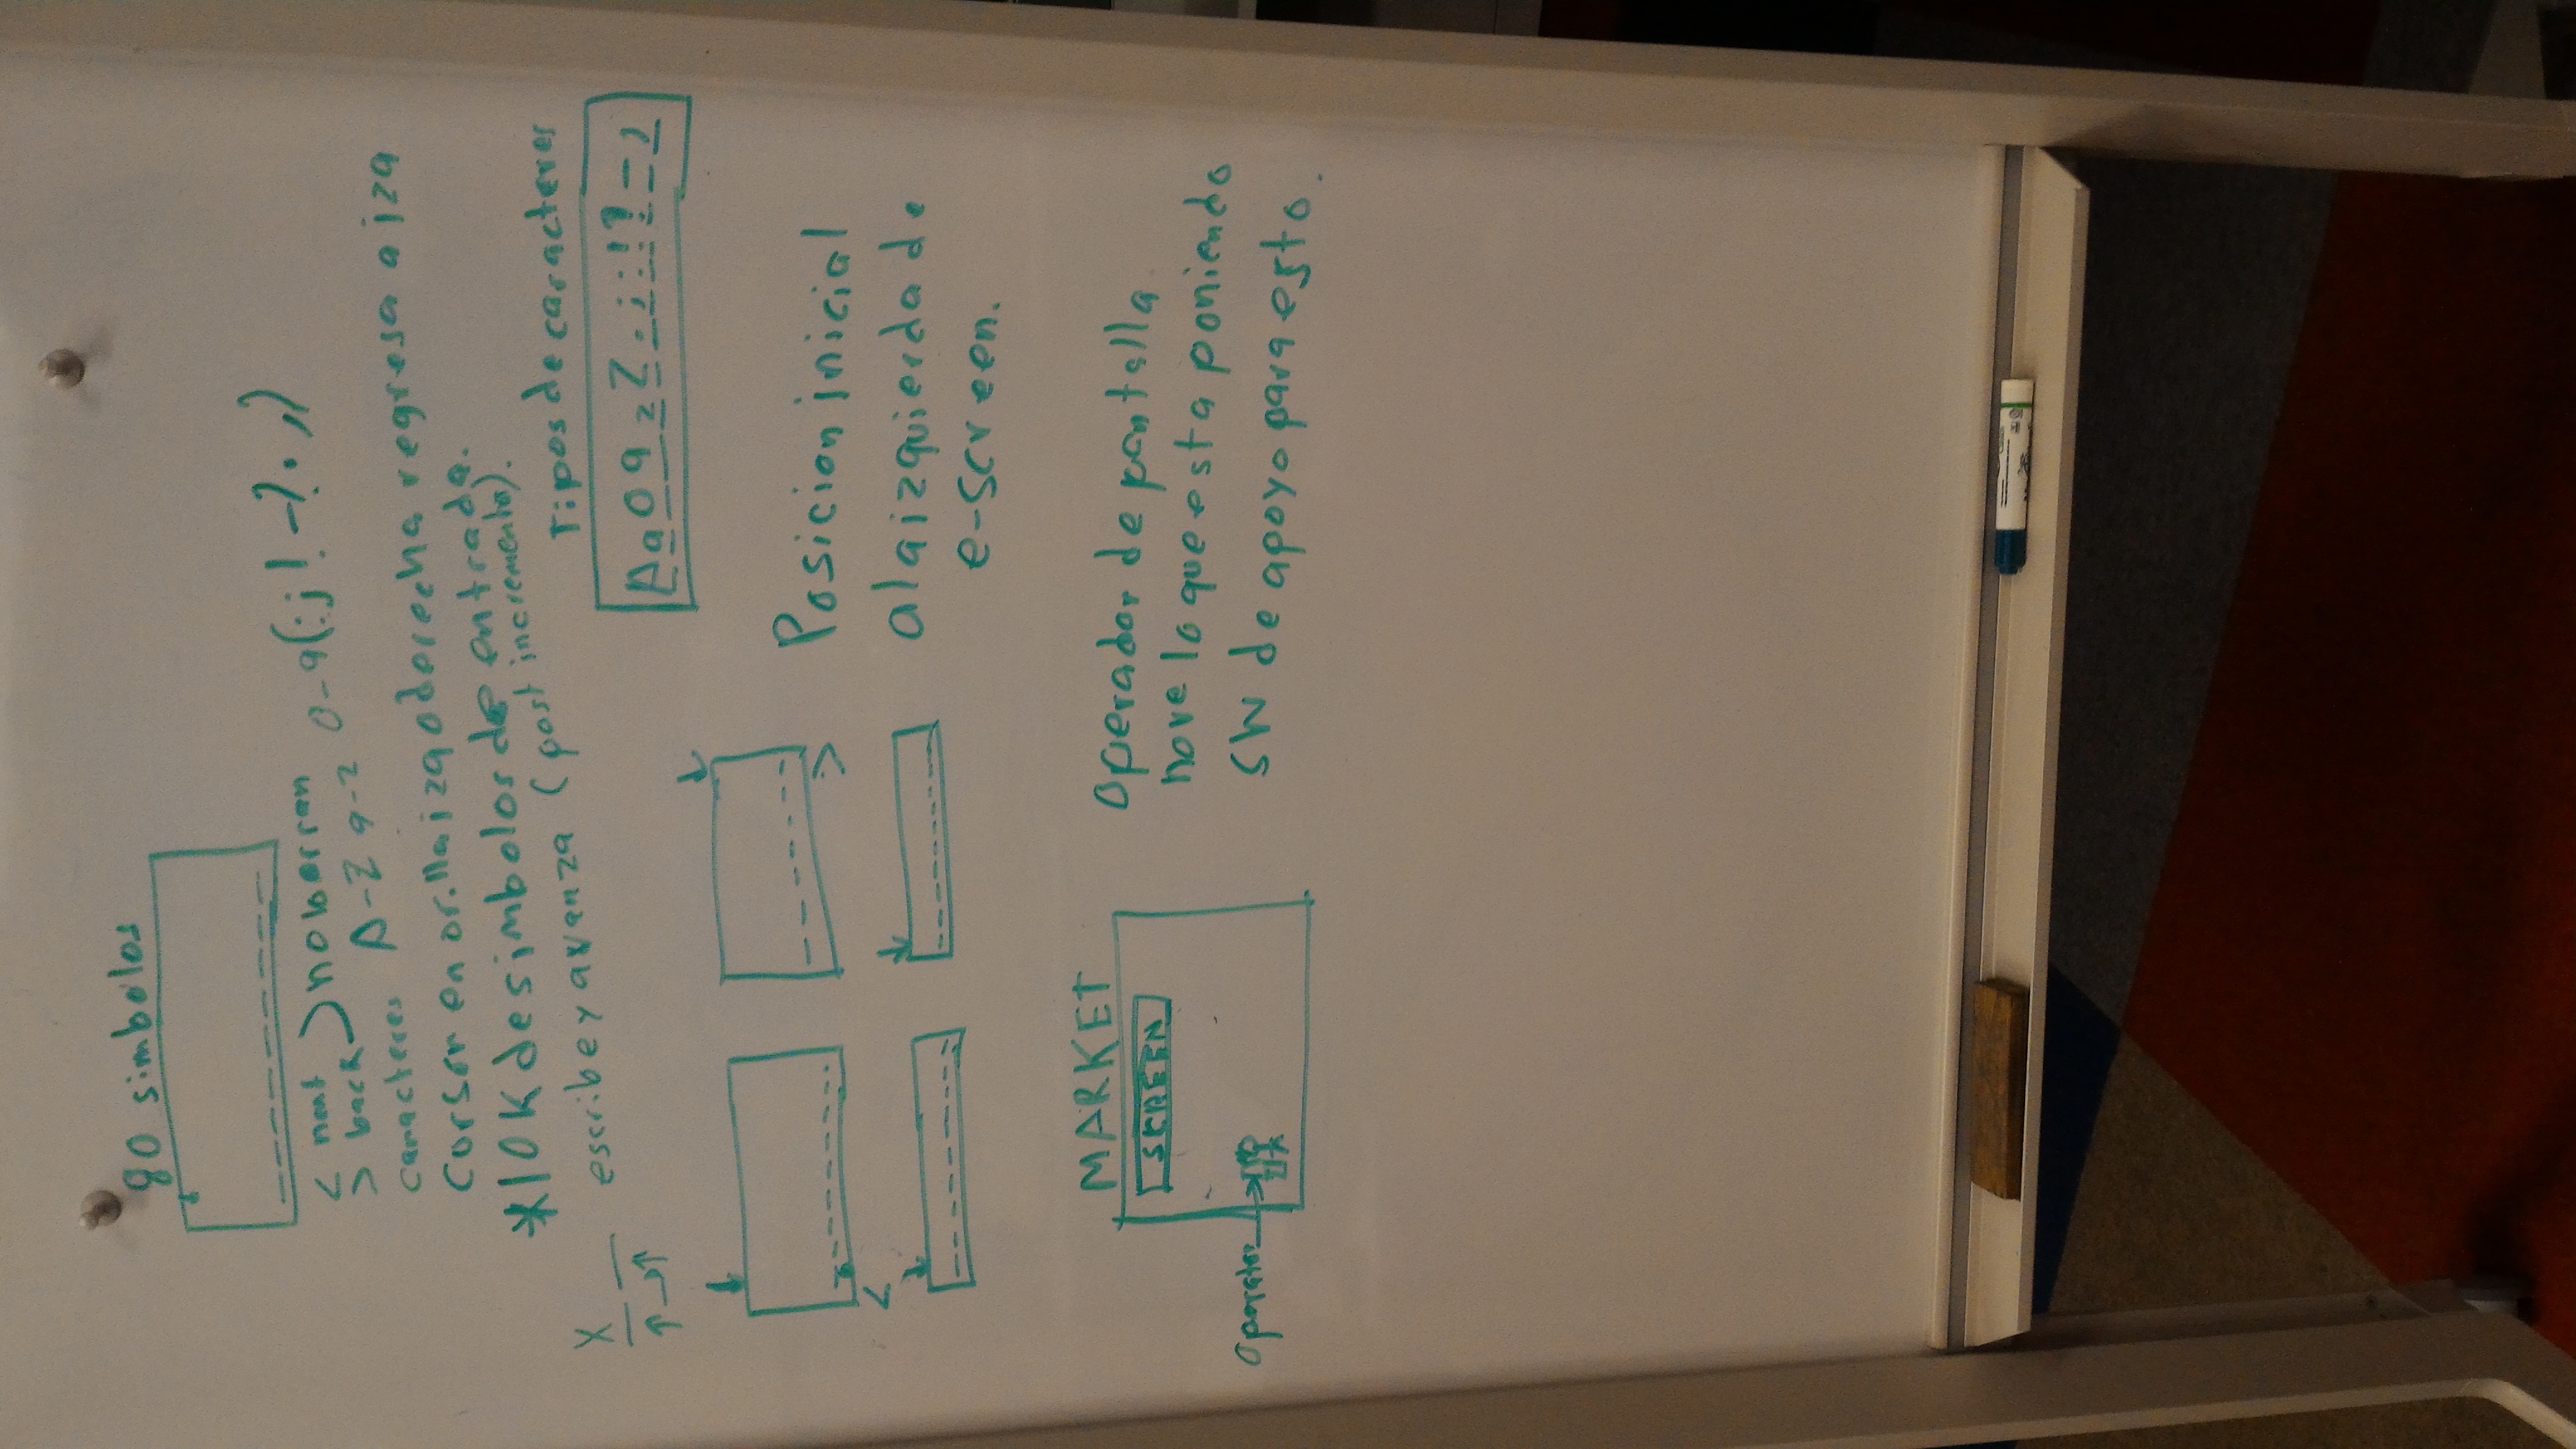 80 simbolos
< next
> back
no borran
caracteres A-Z a-z 0-9 (:; ! -?. ,)
cursor en orilla izq o derecha regresa a izq
*10K de simbolos de entrada.
X escribe y avanza (post incremento).
Tipos de caracteres
A a 0 9 z Z . ; : ! ? - ,
<
>
Posicion inicial
a la izquierda de
e-screen.
MARKET
SCREEN
operator
operador de pantalla
no ve lo que esta poniendo
SW de apoyo para esto.